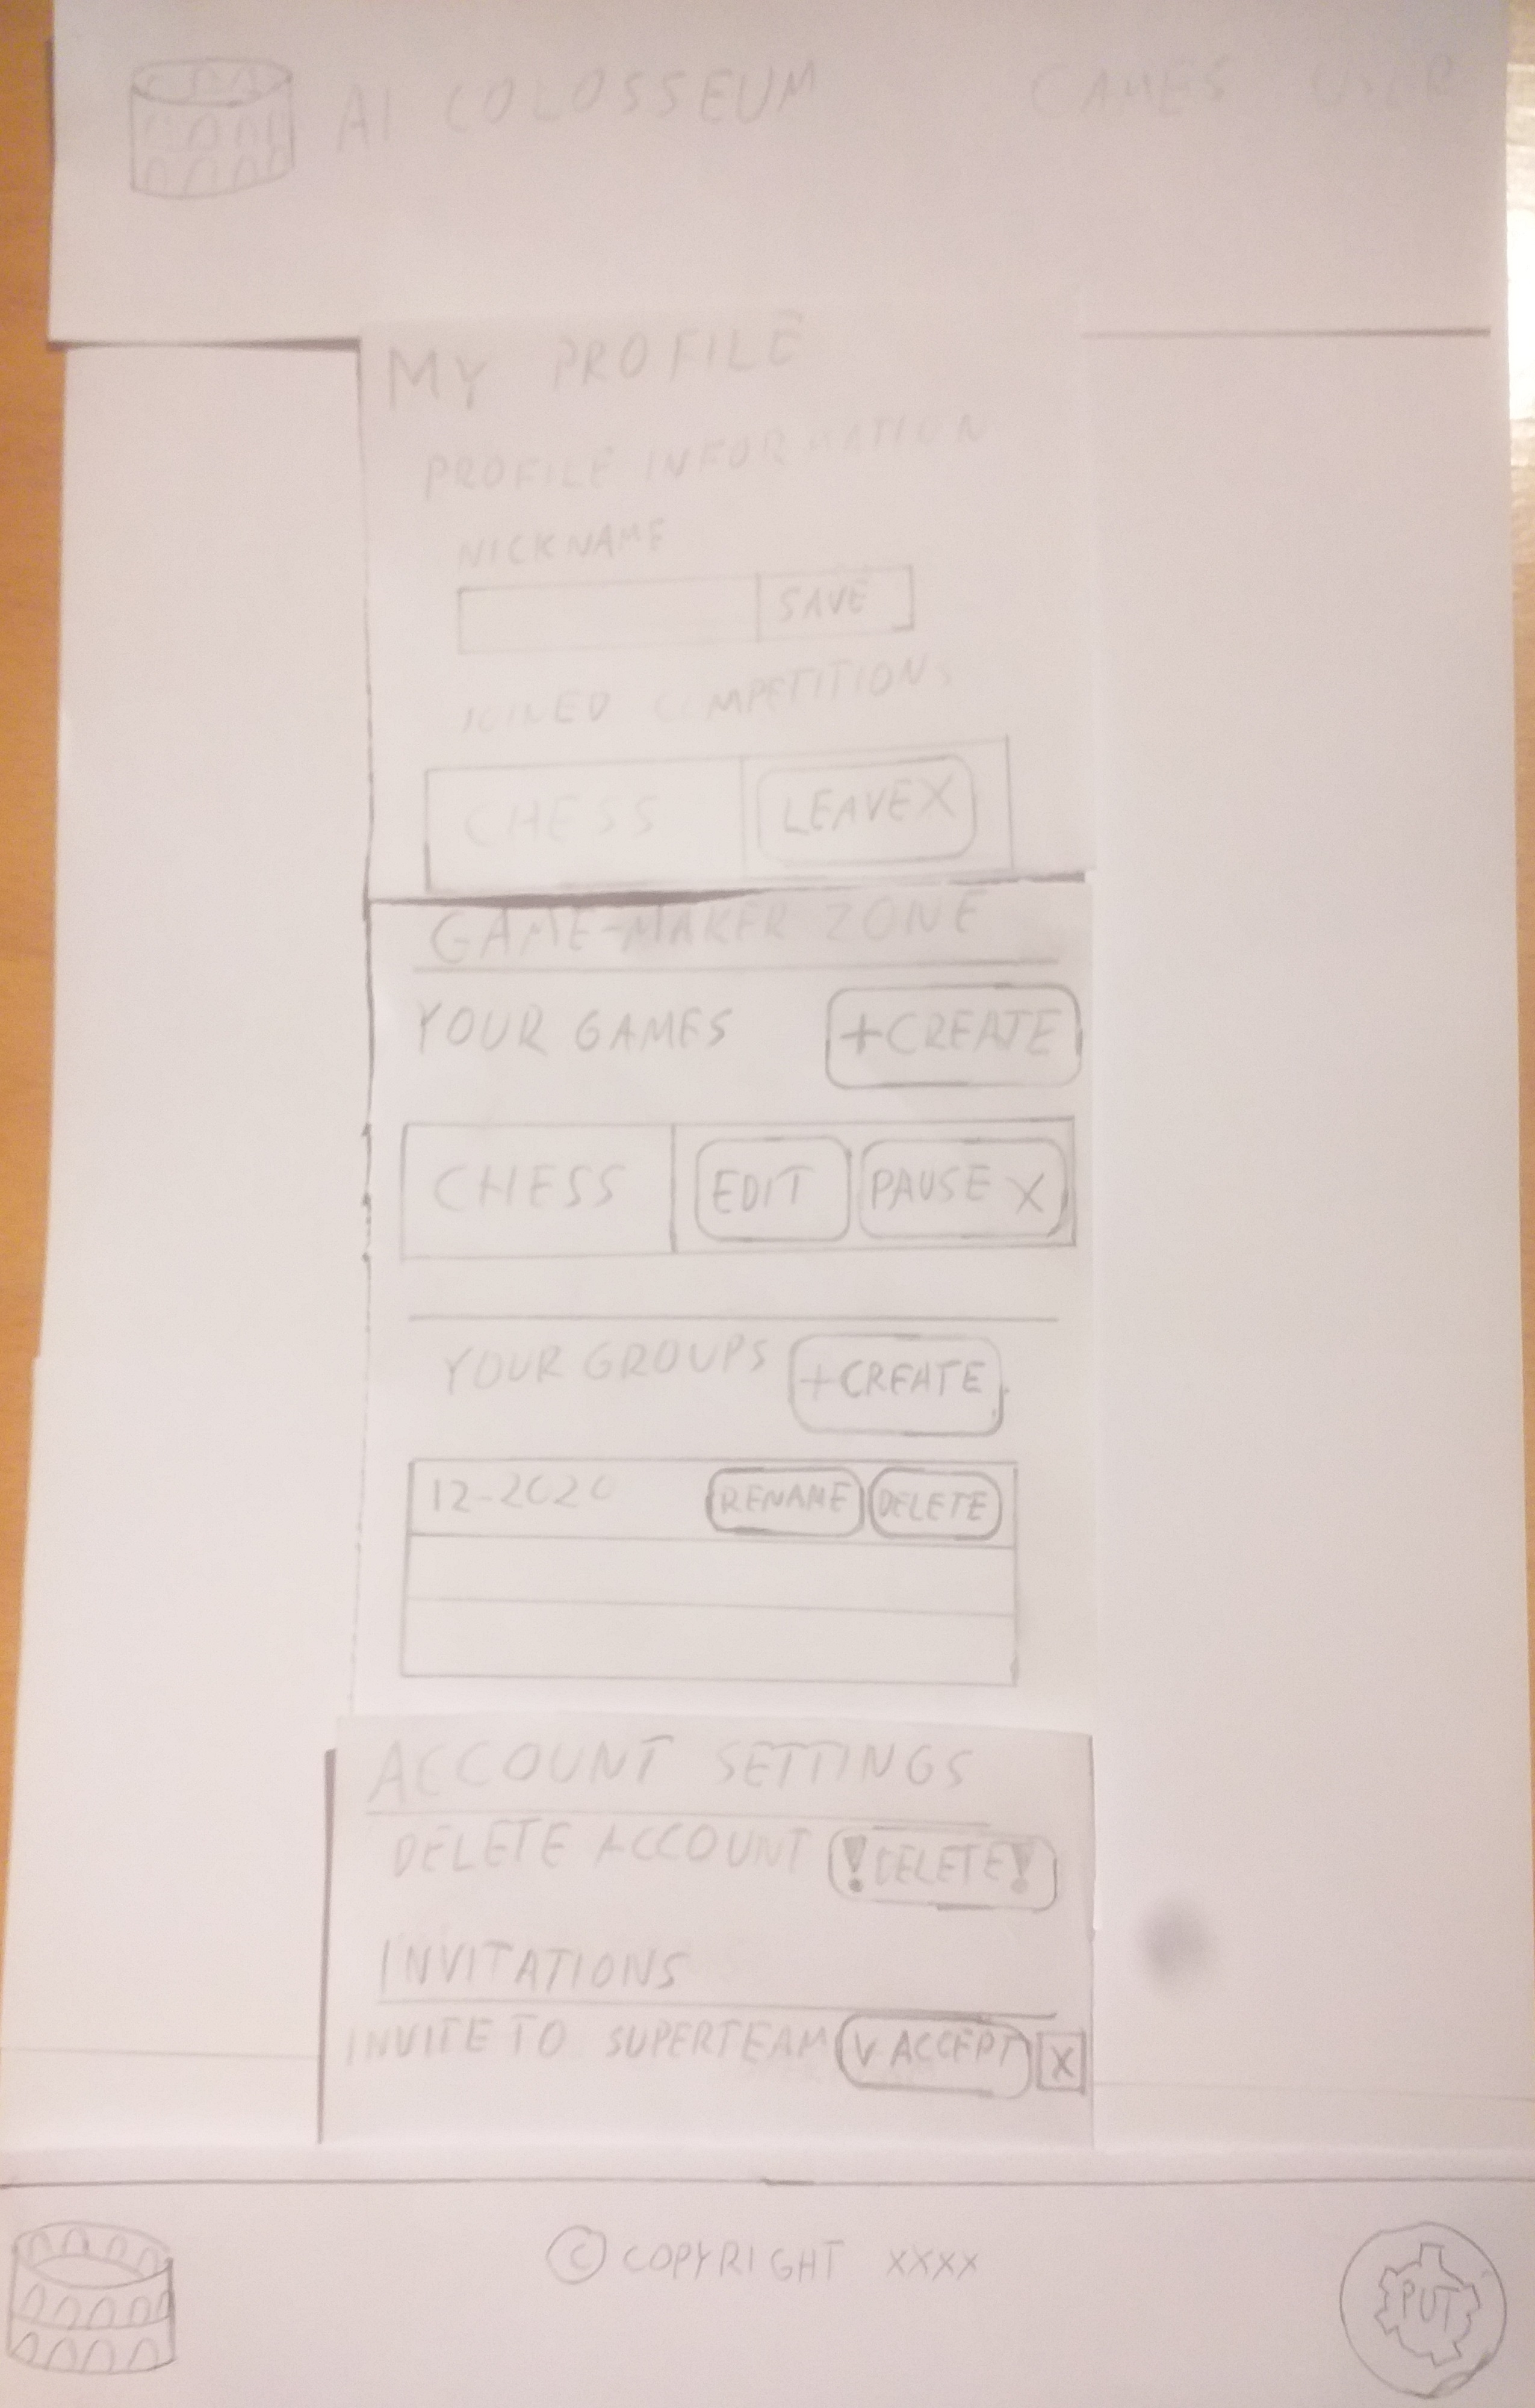 AI COLOSSEUM GAMES USER
MY PROFILE
PROFILE INFORMATION
NICKNAME
SAVE
JOINED COMPETITIONS
CHESS LEAVE X
GAME-MAKER ZONE
YOUR GAMES +CREATE
CHESS EDIT PAUSE X
YOUR GROUPS +CREATE
12-2020 RENAME DELETE
ACCOUNT SETTINGS
DELETE ACCOUNT ! DELETE !
INVITATIONS
INVITE TO SUPERTEAM V ACCEPT X
© COPYRIGHT XXXX
PUT